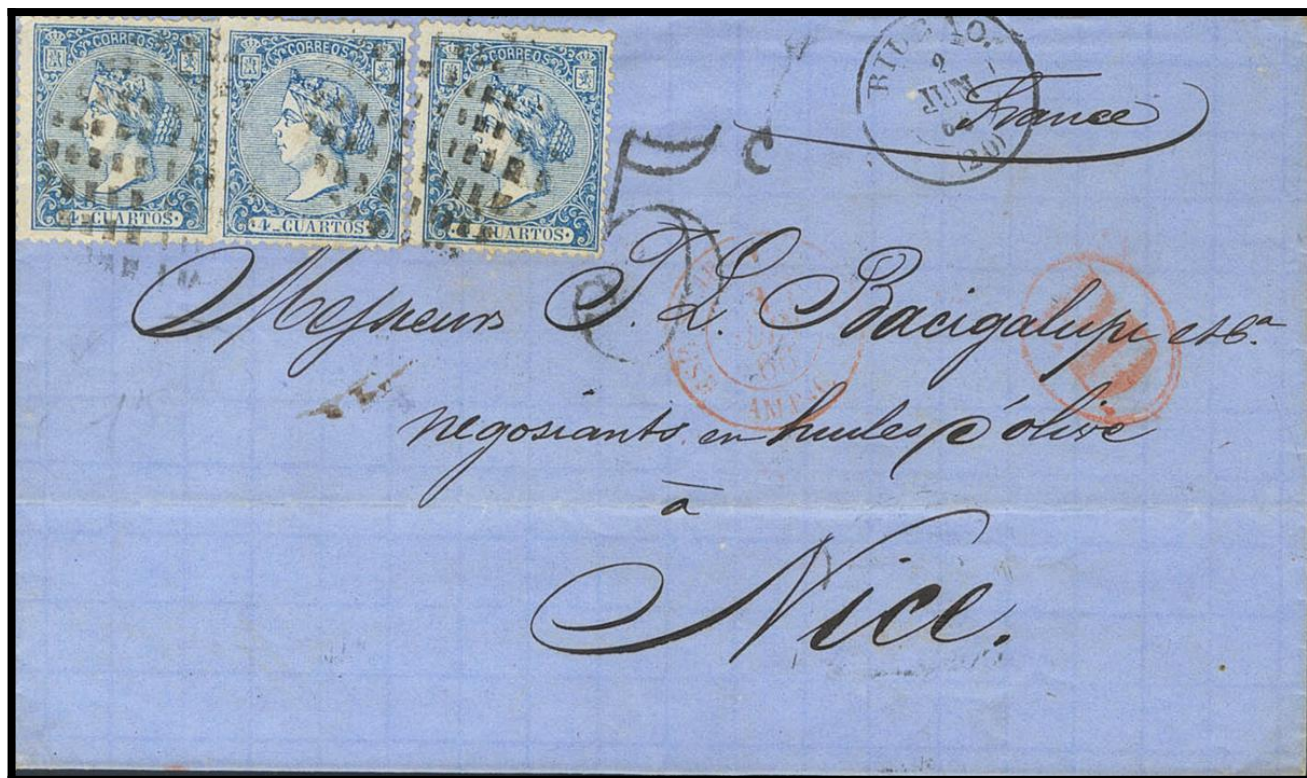 CORREOS CORREOS CORREOS
4 CUARTOS 4 CUARTOS 4 CUARTOS
BILBAO.
2
JUN
(20)
France
Messieurs L. Bacigalupi et Cª
PD
negosiants en huiles d'olive
à
Nice.